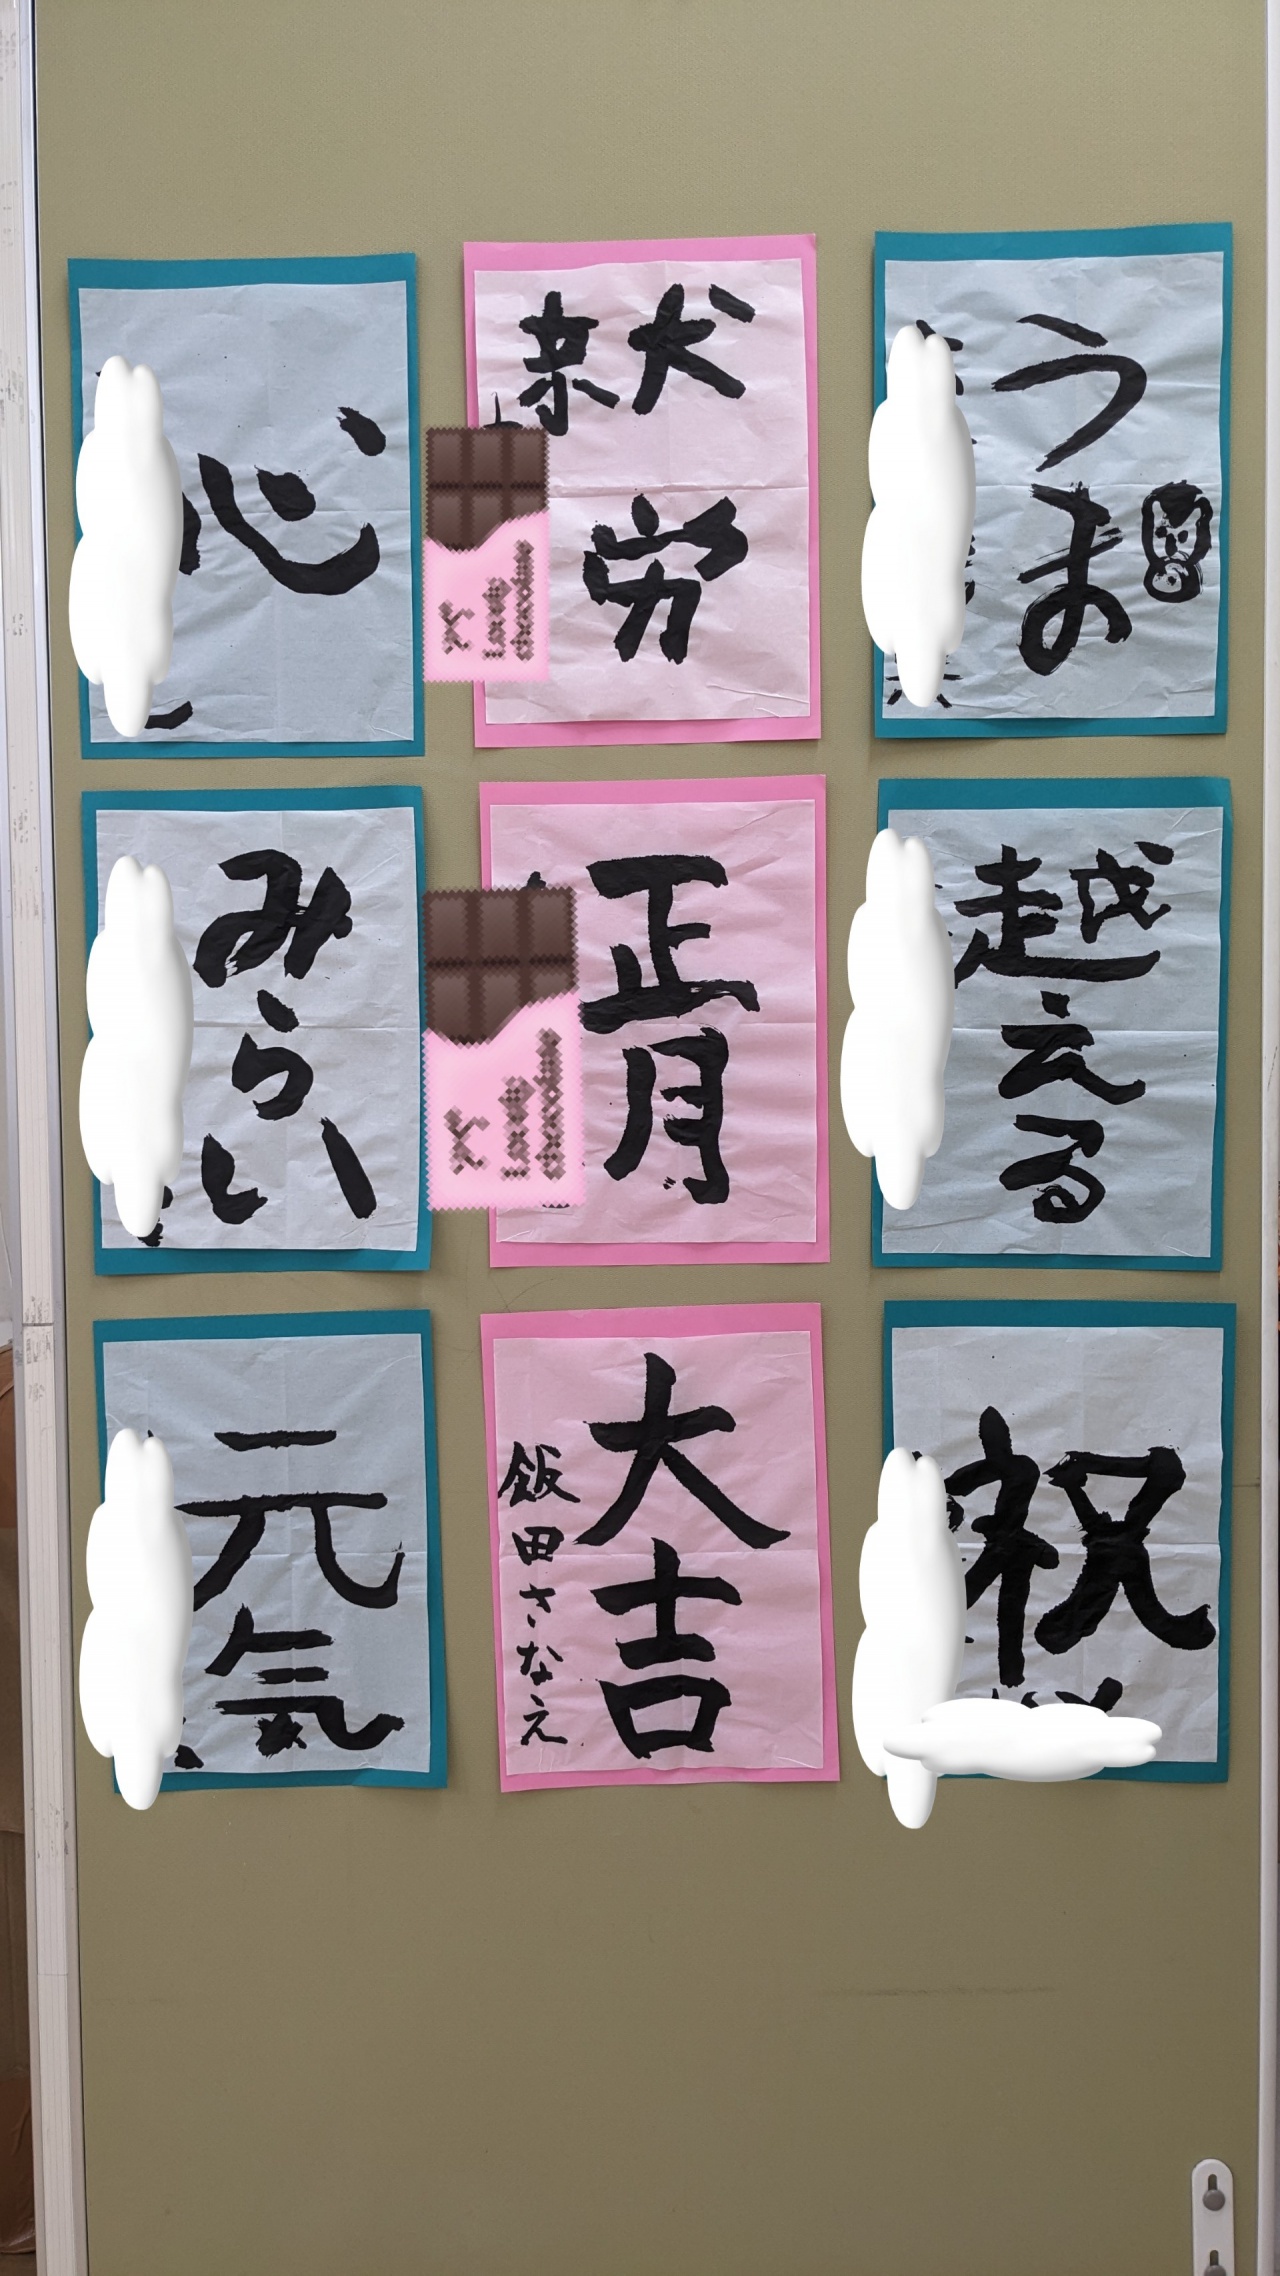 うま
就労
心
越える
正月
みらい
祝
大吉
飯田さなえ
元気